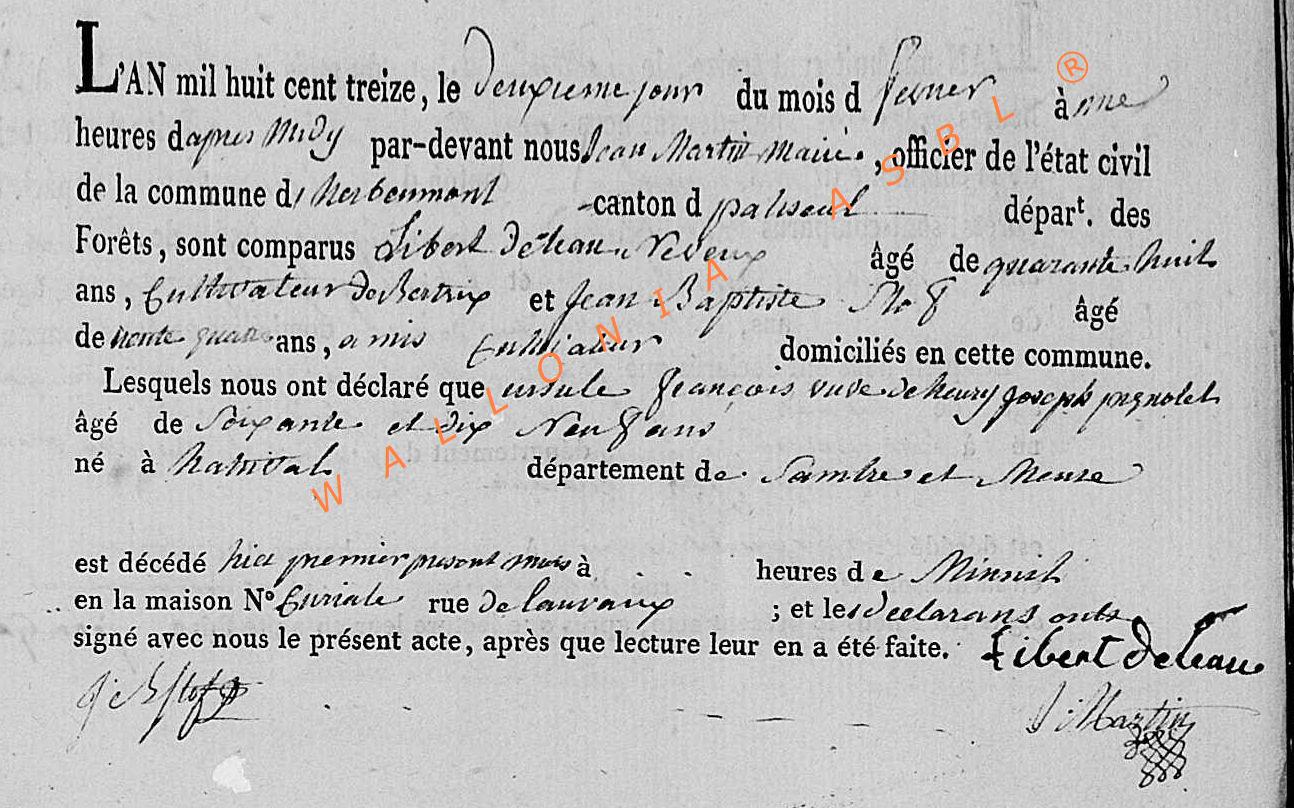 L'AN mil huit cent treize, le deuxieme jour du mois d fevrier à une
heures d apres midy par-devant nous Jean Martin maire, officier de l'état civil
de la commune d herbeumont canton d paliseul départ. des
Forêts, sont comparus Libert deleau Neveux âgé de quarante huit
ans, Cultivateur de Bertrix et Jean Baptiste âgé
de trente quatre ans, amis Cultivateur domiciliés en cette commune.
Lesquels nous ont déclaré que ursule françois vuve de henry joseph pignolet
âgé de Soixante et dix Neuf ans
né à département de Sambre et Meuse
est décédé hier premier present mois à heures de Minuit
en la maison N° Curiale rue de lauvaux ; et les declarans onts
signé avec nous le présent acte, après que lecture leur en a été faite. Libert Deleau
J Martin
WALLONIA ASBL ®